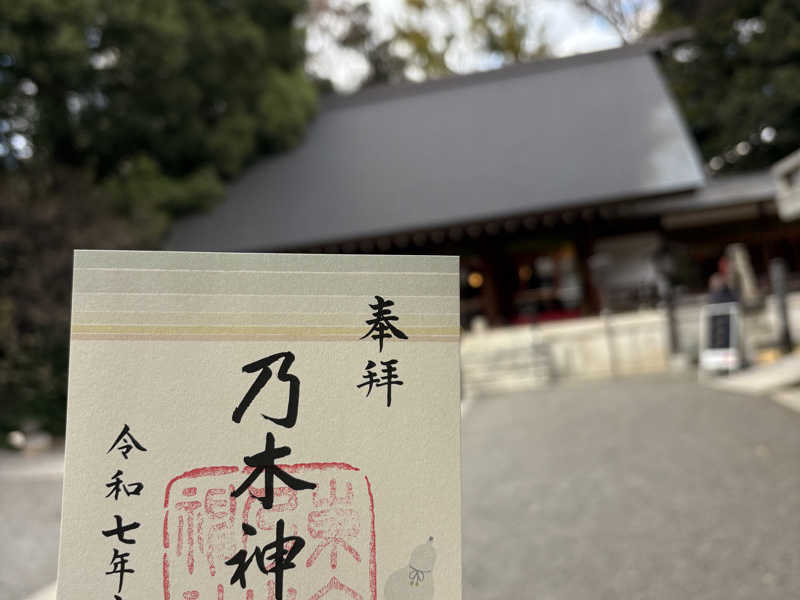 奉拝
乃木神
令和七年